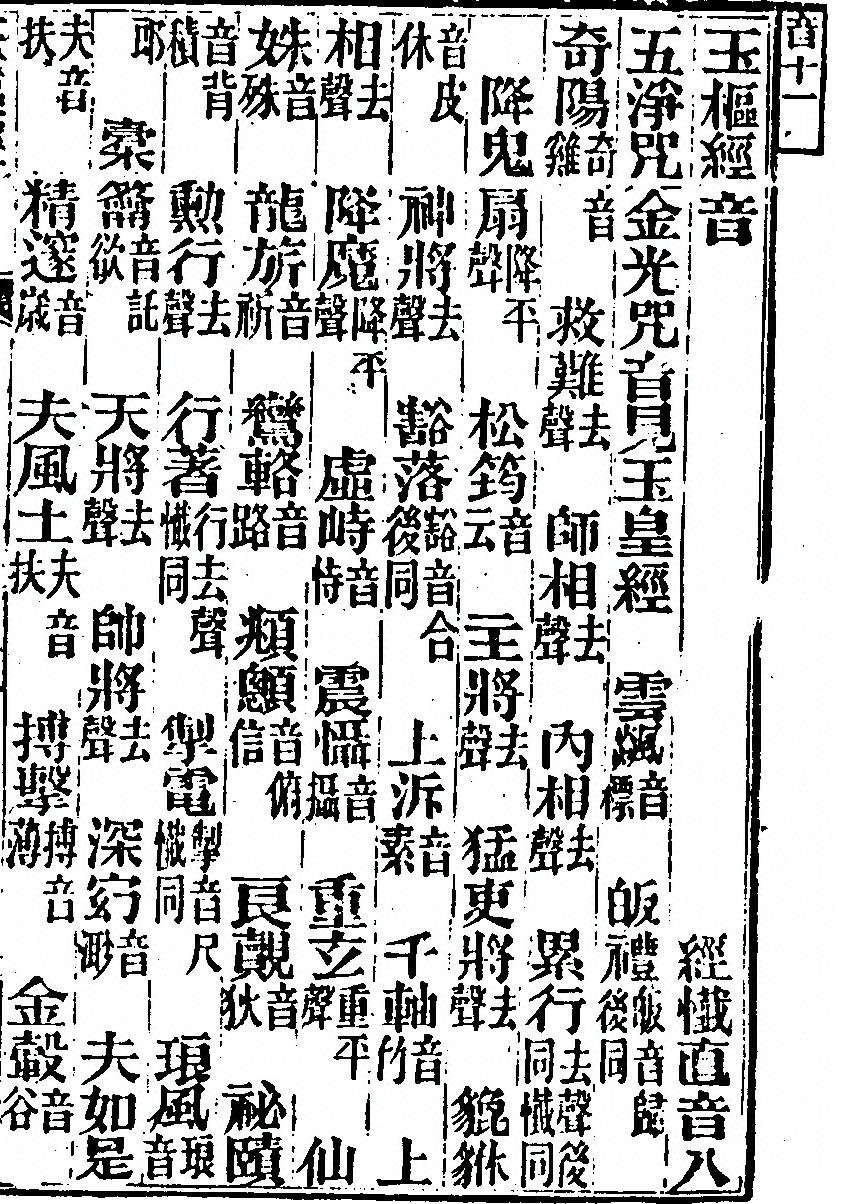 音十一
玉樞經音 經懺直音八
五淨咒金光咒音見玉皇經 雲飆音標 皈禮皈音歸後同
奇陽奇音雞 救難去聲 師相去聲 內相去聲 累行去聲後同懺同
降鬼扇降平聲 松筠音云 主將去聲 猛吏將去聲 貔貅
音皮休 神將去聲 豁落豁音合後同 上泝音素 千軸音竹 上
相去聲 降魔降平聲 虛峙音恃 震懾音攝 重玄重平聲 仙
姝音殊 龍旂音祈 鸞輅音路 頫顖音俯信 艮覿音狄 祕賾
音背積 勳行去聲 行著行去聲懺同 掣電掣音尺懺同 琅風琅音
郎 橐籥音託欲 天將去聲 帥將去聲 深窈音渺 夫如是
夫音扶 精邃音歲 夫風土夫音扶 搏擊搏音薄 金轂音谷